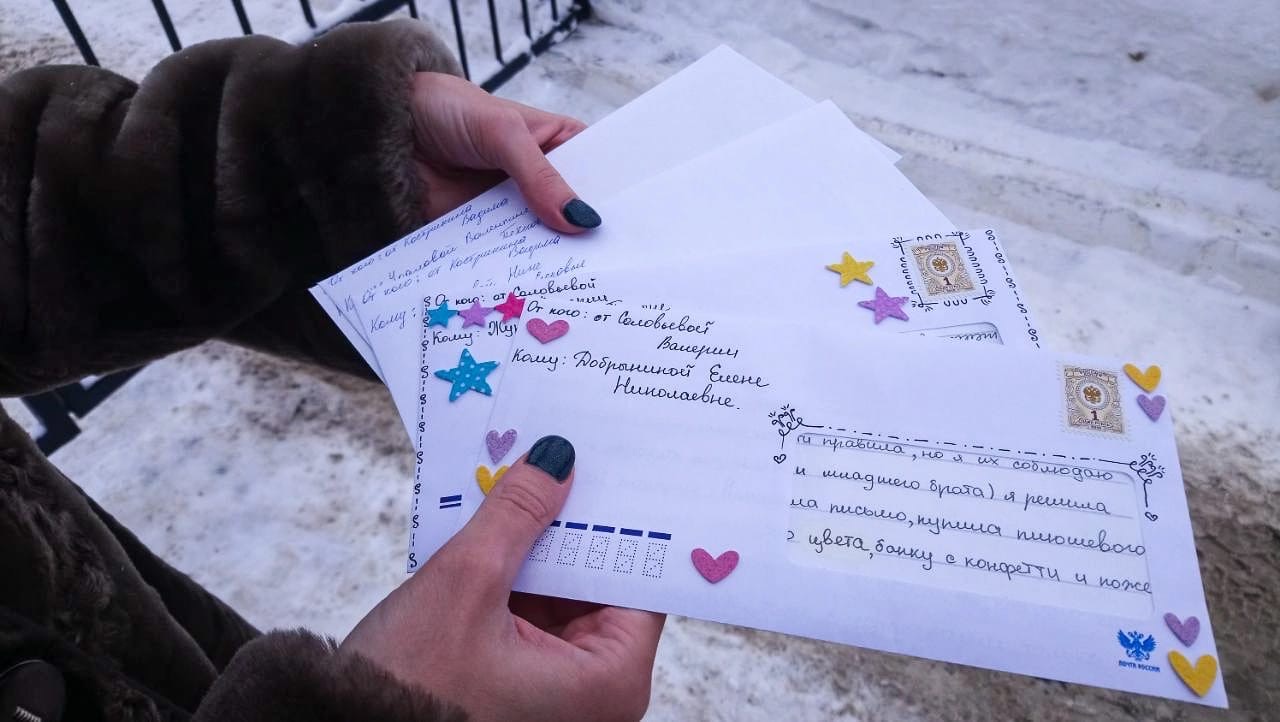 От кого: от Костринина Вадима
От кого: от Костринина
Вадима
Кому:
От кого: от Соловьевой
Кому:
От кого: от Соловьевой
Валерии
Кому: Добрыниной Елене
Николаевне.
1
1
и правила, но я их соблюдаю
и младшего брата) я решила
ла письмо, купила плюшевого
цвета, банку с конфетти и поже
ПОЧТА РОССИИ